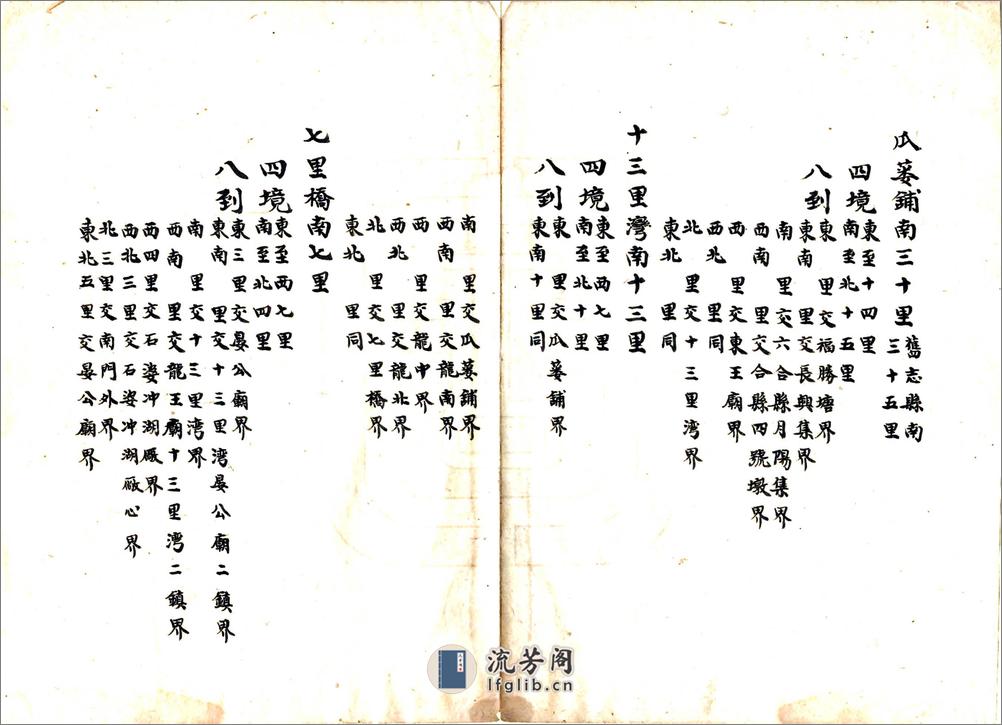 瓜蔞鋪南三十里 舊志縣南
三十五里
四境 東至 十四里
南至北十五里
八到 東 里交福勝塘界
東南 里交長興集界
南 里交六合縣月陽集界
西南 里交合縣四號墩界
西 里交東王廟界
西北 里同
北 里交十三里灣界
東北 里同
十三里灣南十三里
四境 東至西七里
南至北十里
八到 東 里交瓜蔞鋪界
東南十里同
南 里交瓜蔞鋪界
西南 里交龍南界
西 里交龍中界
西北 里交龍北界
北 里交七里橋界
東北 里同
七里橋南七里
四境 東至西七里
南至北四里
八到 東三里交晏公廟界
東南 里交十三里灣晏公廟二鎮界
南 里交十三里灣界
西南 里交龍王廟十三里灣二鎮界
西四里交石婆冲湖廠界
西北三里交石婆冲湖廠心界
北三里交南門外界
東北五里交晏公廟界
流芳阁
lfglib.cn